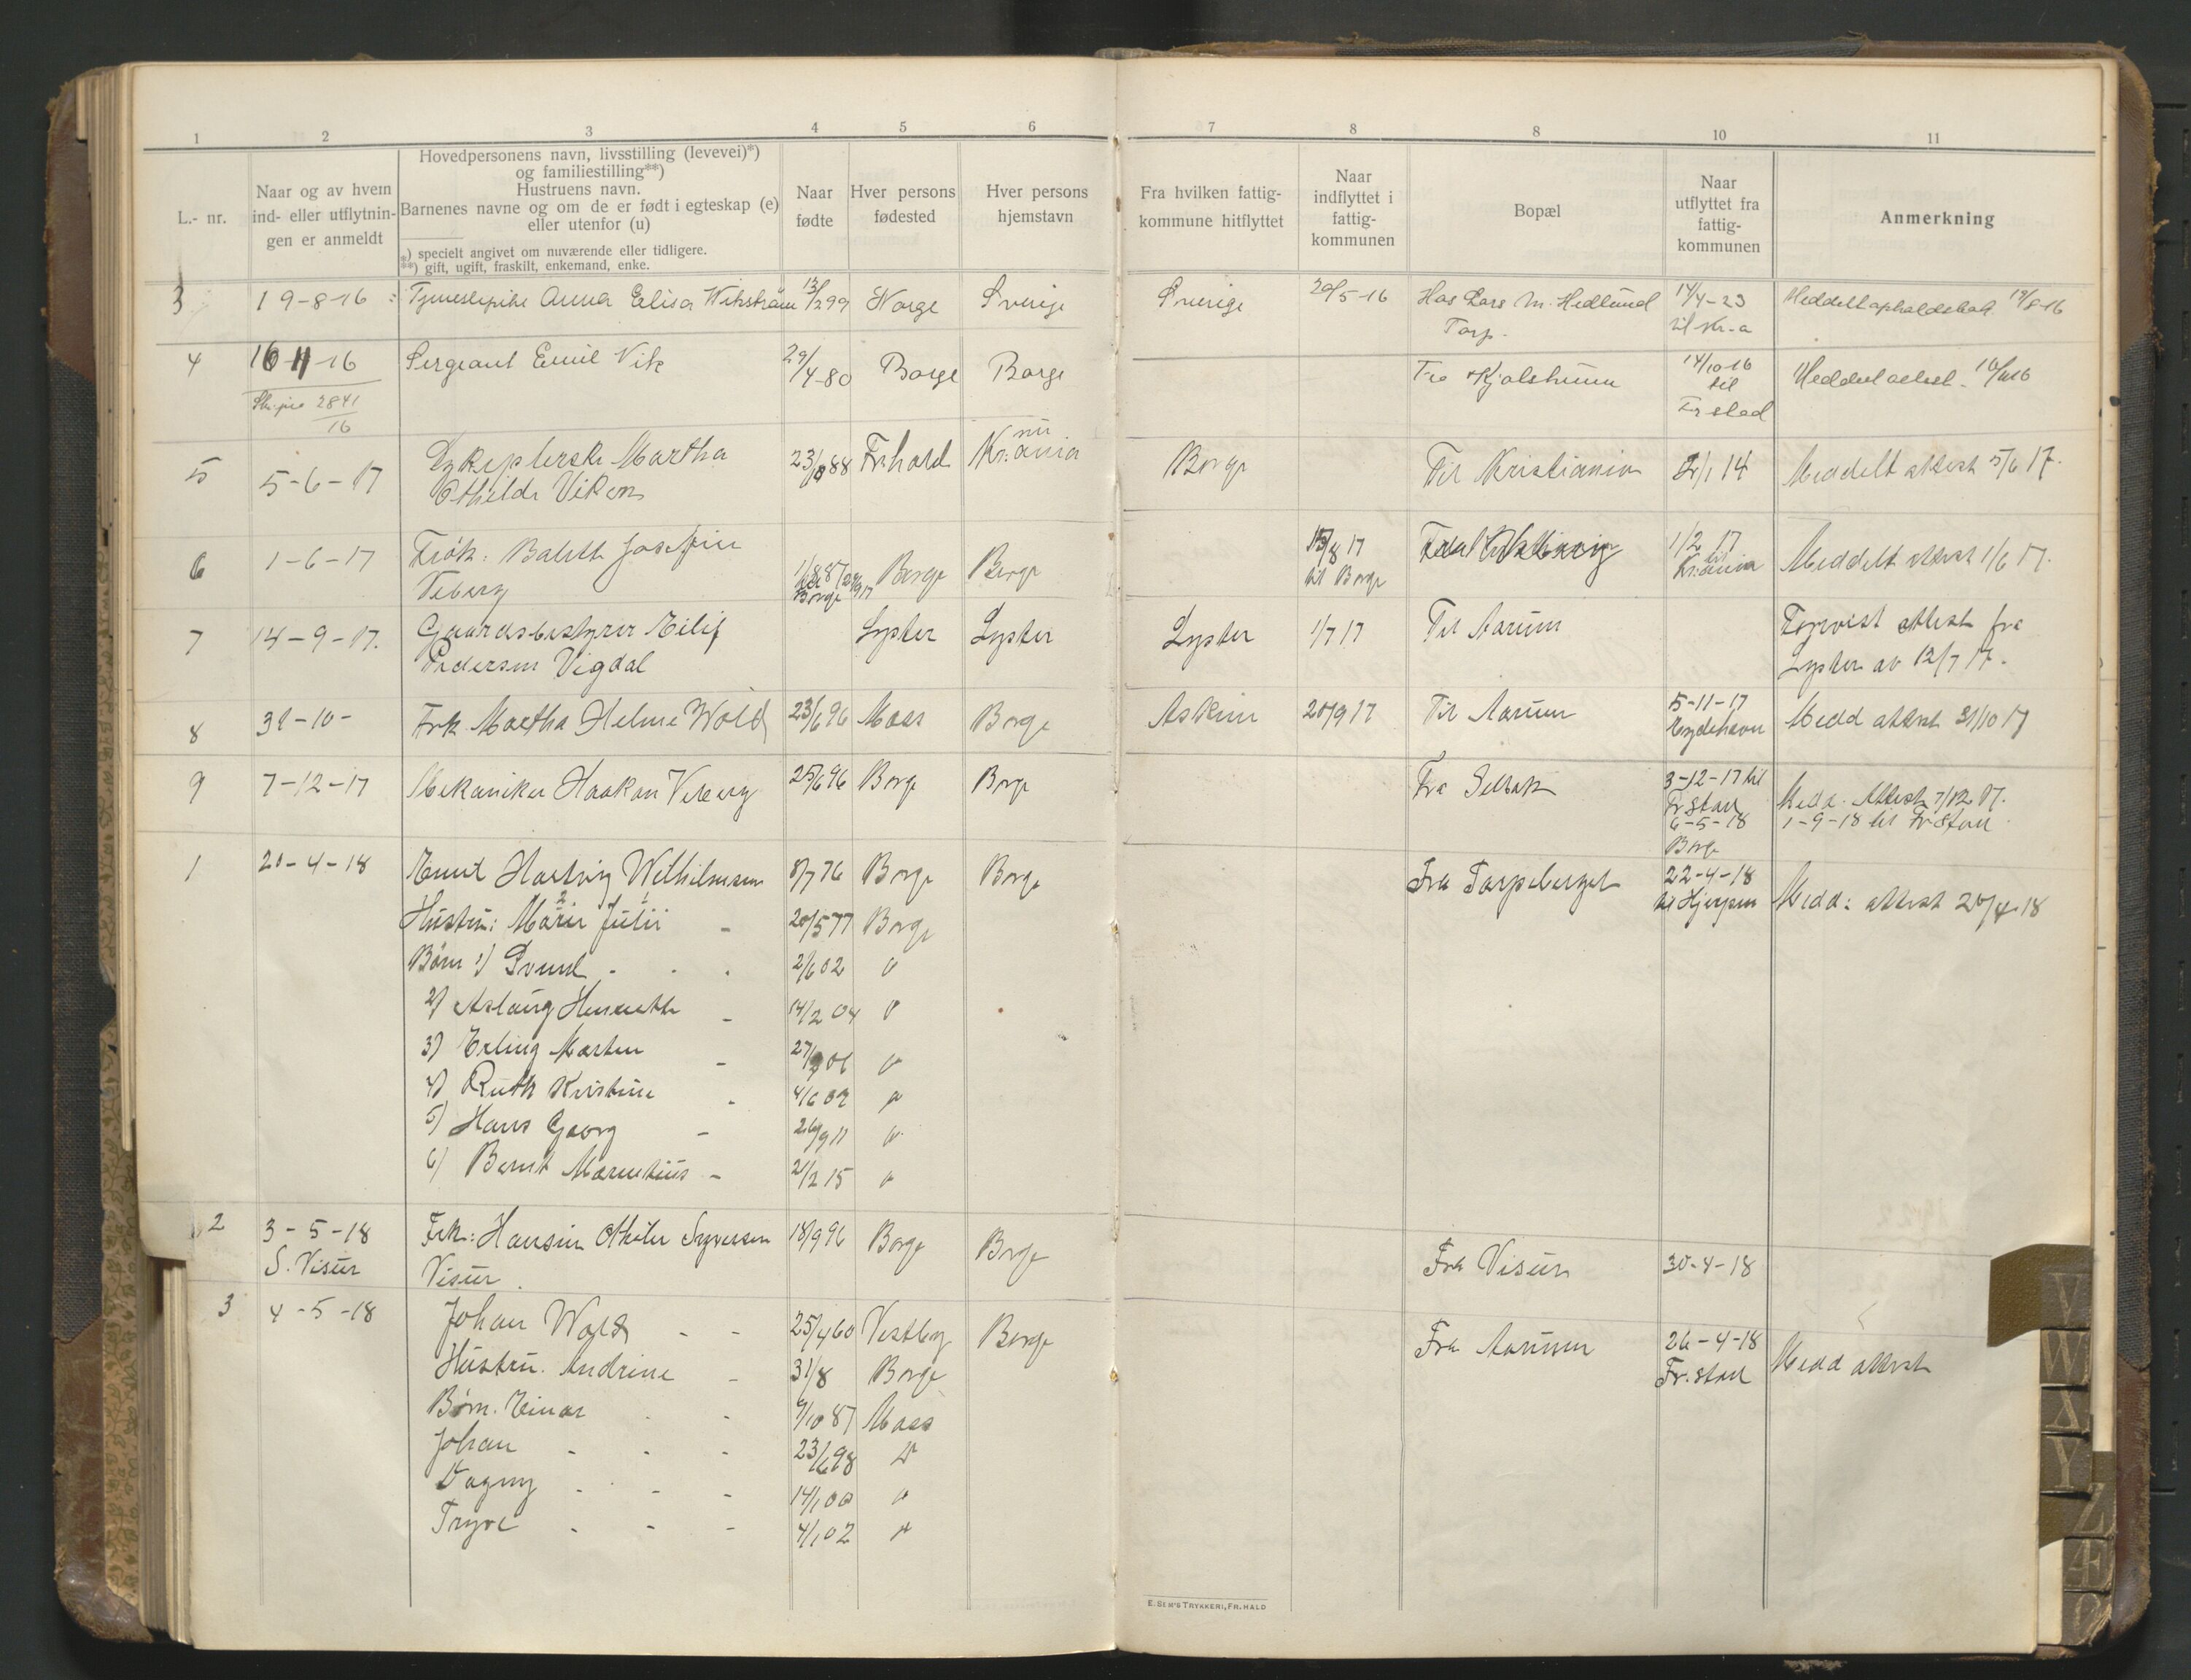 1 2 3 4 5 6 7 8 8 10 11
L.- nr.
Naar og av hvem
ind- eller utflytnin-
gen er anmeldt
Hovedpersonens navn, livsstilling (levevei)*)
og familiestilling**)
Hustruens navn.
Barnenes navne og om de er født i egteskap (e)
eller utenfor (u)
*) specielt angivet om nuværende eller tidligere.
**) gift, ugift, fraskilt, enkemand, enke.
Naar
fødte
Hver persons
fødested
Hver persons
hjemstavn
Fra hvilken fattig-
kommune hitflyttet
Naar
indflyttet i
fattig-
kommunen
Bopæl
Naar
utflyttet fra
fattig-
kommunen
Anmerkning
3 19-8-16 Tjenestepike Anna Elisa Wikström 13/2 99 Norge Sverige Sverige 20/5-16 Hos Lars M. Hedlund 14/4-23 Meddelt opholdsbok 19/8-16
Torp. til Kr.a
4 16-11-16 Sergeant Emil Vik 29/4-80 Borge Borge Fra Kjølshuum 14/10-16 Meddelt attest 16/11 16
2841 til
16 Fr.stad
5 5-6-17 Sykepleierske Martha 23/8 88 Fr.hald nu Kr.ania Borge Til Kristiania 2/1 14 Meddelt attest 5/6 17.
Othilde Viken
6 1-6-17 Frøk: Baleth Josefine 1/8 87 Borge Borge 15/8 17 1/2 17 Meddelt attest 1/6 17.
Veberg Borge til Borge til Kr.ania
7 14-9-17. Gaardsbestyrer Eilif Lyster Lyster Lyster 1/7 17 Til Aarum Forevist attest fra
Pedersen Vigdal Lyster av 12/7 17.
8 31-10- Frk. Martha Helene Wold 23/6 96 Moss Borge Askim 20/9 17 Til Aarum 5-11-17 Medd attest 31/10 17
Eydehavn
9 7-12-17 Mekaniker Haakon Veberg 25/6 96 Borge Borge Fra Selbak 3-12-17 til Medd. Attest 7/12 17.
Fr.stad 1-9-18 til Fr.stad
6-5-18
Borge
1 20-4-18 Emil Hartvig Wilhelmsen 8/7 76 Borge Borge Fra Torpeberget 22-4-18 Medd: attest 20/4 18
til Hjerpen
2 1
Hustru: Marie Julie - 20/5 77 Borge
Børn 1) Svend - - - 2/6 02 "
2) Aslaug Henriette - 14/2 04 "
3) Erling Marten - 27/9 06 "
4) Ruth Kristine - 4/6 09 "
5) Hans Georg - 26/9 11 "
6) Bernt Marentius - 21/2 15 "
2 3-5-18 Frk: Hansine Othilie Syversen 18/9 96 Borge Borge Fra Visur 30-4-18
S. Visur Visur.
3 4-5-18 Johan Wold - - 25/4 60 Vestby Borge Fra Aarum 26-4-18 Medd attest
Fr.stad
Hustru. Andrine - 31/8 Borge
Børn. Einar - - 9/10 87 Moss
Johan - - - 23/6 98 "
Dagny - - - 14/1 00 "
Trygve - - - 4/1 02 "
E. SEM'S TRYKKERI, FR.HALD
V
W
X
Y
Z
Æ
Ø